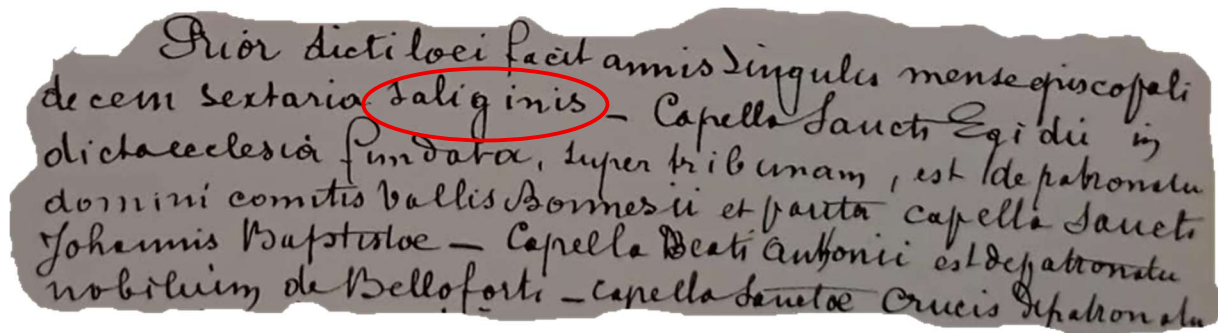 Prior dicti loci facit annis singulis mense episcopali
decem sextaria saliginis _ Capella Sancti Egidii in
dicta ecclesia fundata, super tribunam, est de patronatu
domini comitis Vallis Bonnesii et facta capella Sancti
Johannis Baptistoe _ Capella Beati Anthonii est de patronatu
nobilium de Belloforti _ capella Sanctoe Crucis de patronatu